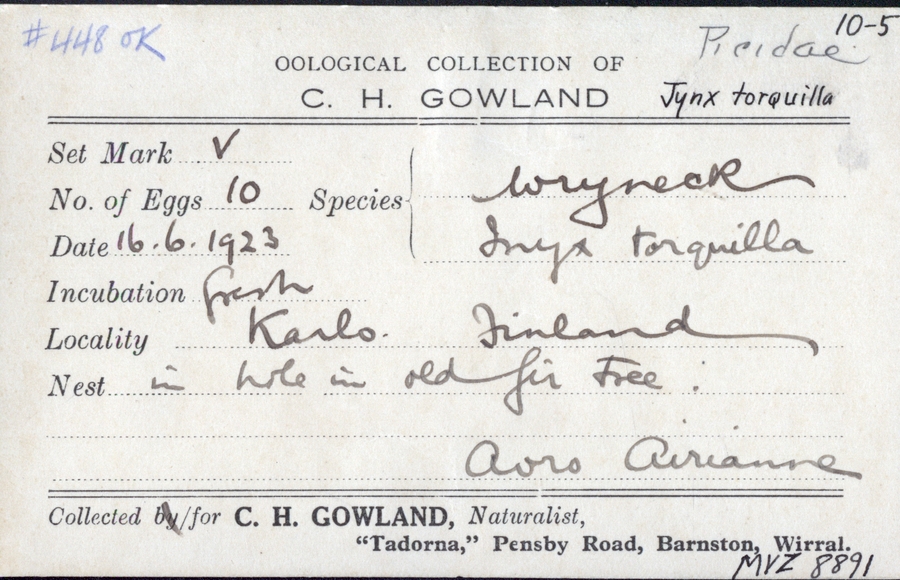 #448 OK
Picidae
10-5
OOLOGICAL COLLECTION OF
C. H. GOWLAND
Jynx torquilla
Set Mark V
No. of Eggs 10 Species Wryneck
Date 16.6.1923 Inyx torquilla
Incubation fresh
Locality Karlo. Finland
Nest in hole in old fir Tree.
Aoro Airianne
Collected by/for C. H. GOWLAND, Naturalist,
"Tadorna," Pensby Road, Barnston, Wirral.
MVZ 8891